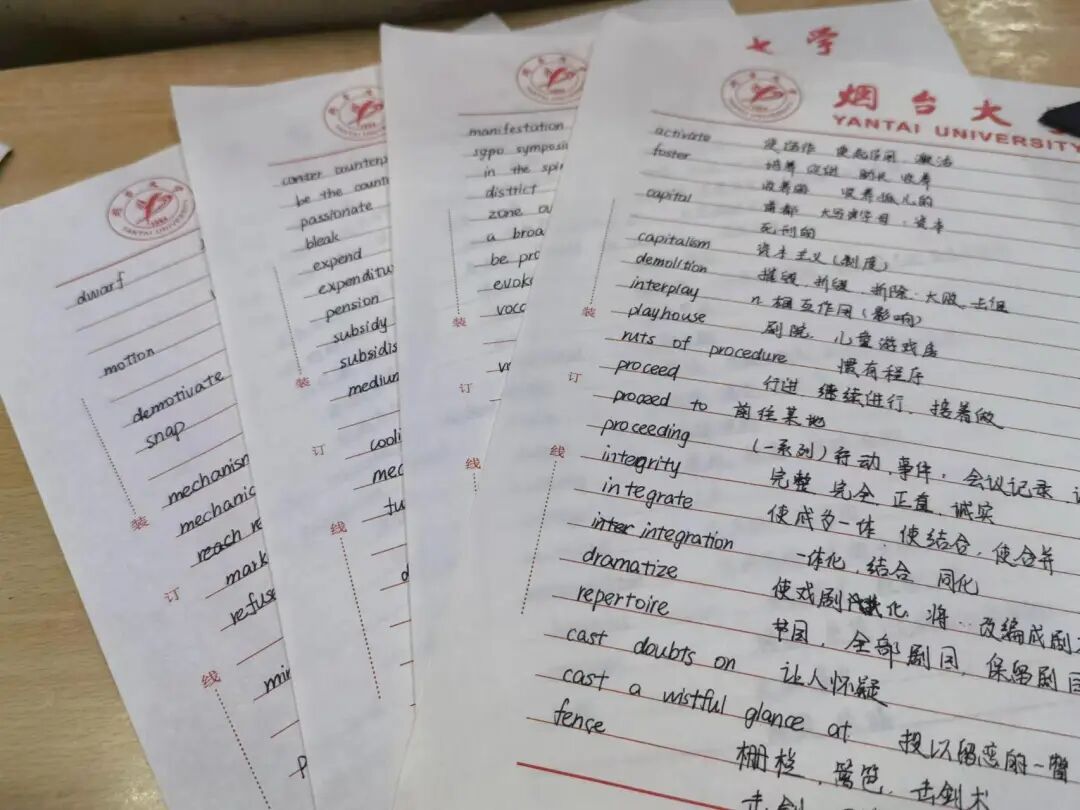 dwarf
motion
demotivate
snap
mechanism
mechanic
reach
mark
refuse
装
订
线
YANTAI UNIVERSITY
be the
passionate
bleak
expend
pension
subsidy
medium
装
订
线
YANTAI UNIVERSITY
manifestation
in the
district
zone
a
be
装
订
线
大学
烟台大
YANTAI UNIVERSITY
activate 使运作 使起作用 激活
foster 培养 促进 助长 收养
收养的 收养孤儿的
capital 首都 大写字母 资本
死刑的
capitalism 资本主义(制度)
demolition 摧毁, 拆毁 拆除. 大败
interplay n. 相互作用(影响)
playhouse 剧院, 儿童游戏房
ruts of procedure 惯有程序
proceed 行进, 继续进行, 接着做
proceed to 前往某地
proceeding (一系列)行动, 事件, 会议记录
integrity 完整 完全 正直 诚实
integrate 使成为一体, 使结合, 使合并
inter integration 一体化, 结合 同化
dramatize 使戏剧化, 将… 改编成剧
repertoire 全部剧目, 保留剧目
cast doubts on 让人怀疑
cast a wistful glance at 投以留恋的一瞥
fence 栅栏, 篱笆, 击剑术
装
订
线